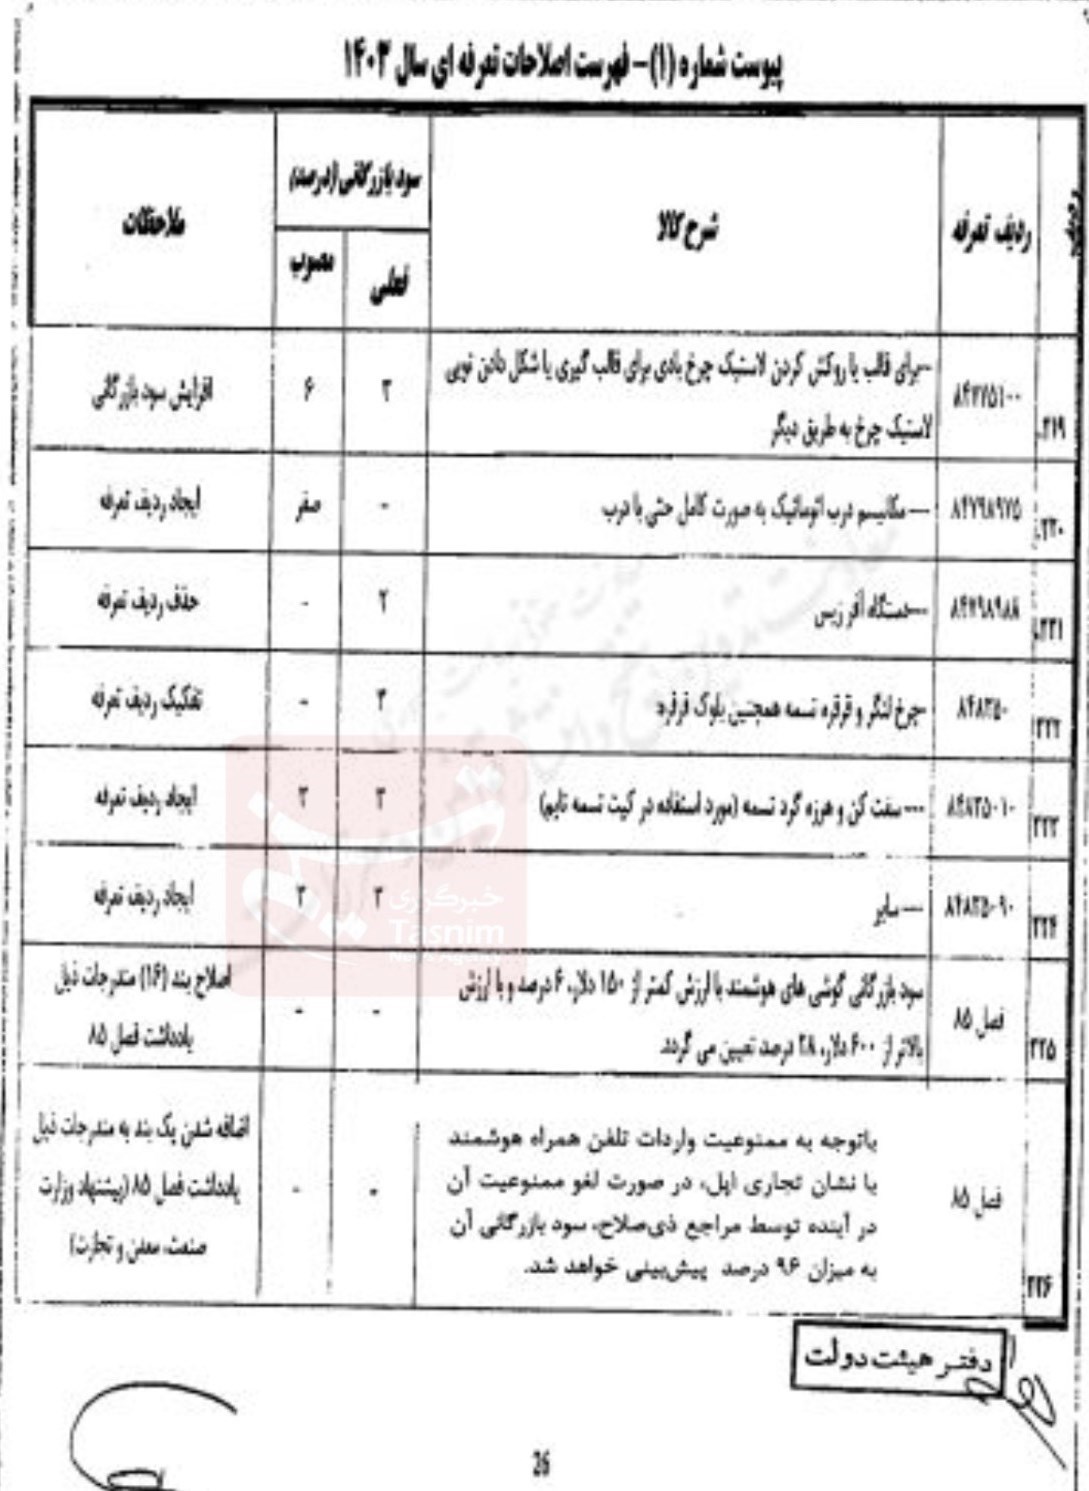 پیوست شماره (۱)- فهرست اصلاحات تعرفه ای سال ۱۴۰۳
ردیف
ردیف تعرفه
شرح کالا
سود بازرگانی (درصد)
فعلی
مصوب
ملاحظات
۳۱۹.
۸۴۷۷۵۱۰۰
--برای قالب یا روکش کردن لاستیک چرخ بادی برای قالب گیری یا شکل دادن تویی
لاستیک چرخ به طریق دیگر
۳
۶
افزایش سود بازرگانی
۳۲۰.
۸۴۷۹۸۹۷۵
--- مکانیسم درب اتوماتیک به صورت کامل حتی با درب
-
صفر
ایجاد ردیف تعرفه
۳۲۱.
۸۴۷۹۸۹۸۸
---دستگاه آفر زیس
۲
-
حذف ردیف تعرفه
۳۲۲
۸۴۸۳۵۰
-چرخ لنگر و قرقره تسمه همچنین بلوک قرقره:
۳
-
تفکیک ردیف تعرفه
۳۲۳
۸۴۸۳۵۰۱۰
--- سفت کن و هرزه گرد تسمه (مورد استفاده در کیت تسمه تایم)
۳
۳
ایجاد ردیف تعرفه
۳۲۴
۸۴۸۳۵۰۹۰
--- سایر
۳
۳
ایجاد ردیف تعرفه
۳۲۵
فصل ۸۵
سود بازرگانی گوشی های هوشمند با ارزش کمتر از ۱۵۰ دلار، ۶ درصد و با ارزش
بالاتر از ۶۰۰ دلار، ۲۸ درصد تعیین می گردد.
-
-
اصلاح بند (۱۶) مندرجات ذیل
یادداشت فصل ۸۵
۳۲۶
فصل ۸۵
باتوجه به ممنوعیت واردات تلفن همراه هوشمند
با نشان تجاری اپل، در صورت لغو ممنوعیت آن
در آینده توسط مراجع ذی‌صلاح، سود بازرگانی آن
به میزان ۹۶ درصد پیش‌بینی خواهد شد.
-
-
اضافه شدن یک بند به مندرجات ذیل
یادداشت فصل ۸۵ (پیشنهاد وزارت
صنعت، معدن و تجارت)
خبرگزاری
Tasnim
News Agency
دفتر هیئت دولت
26